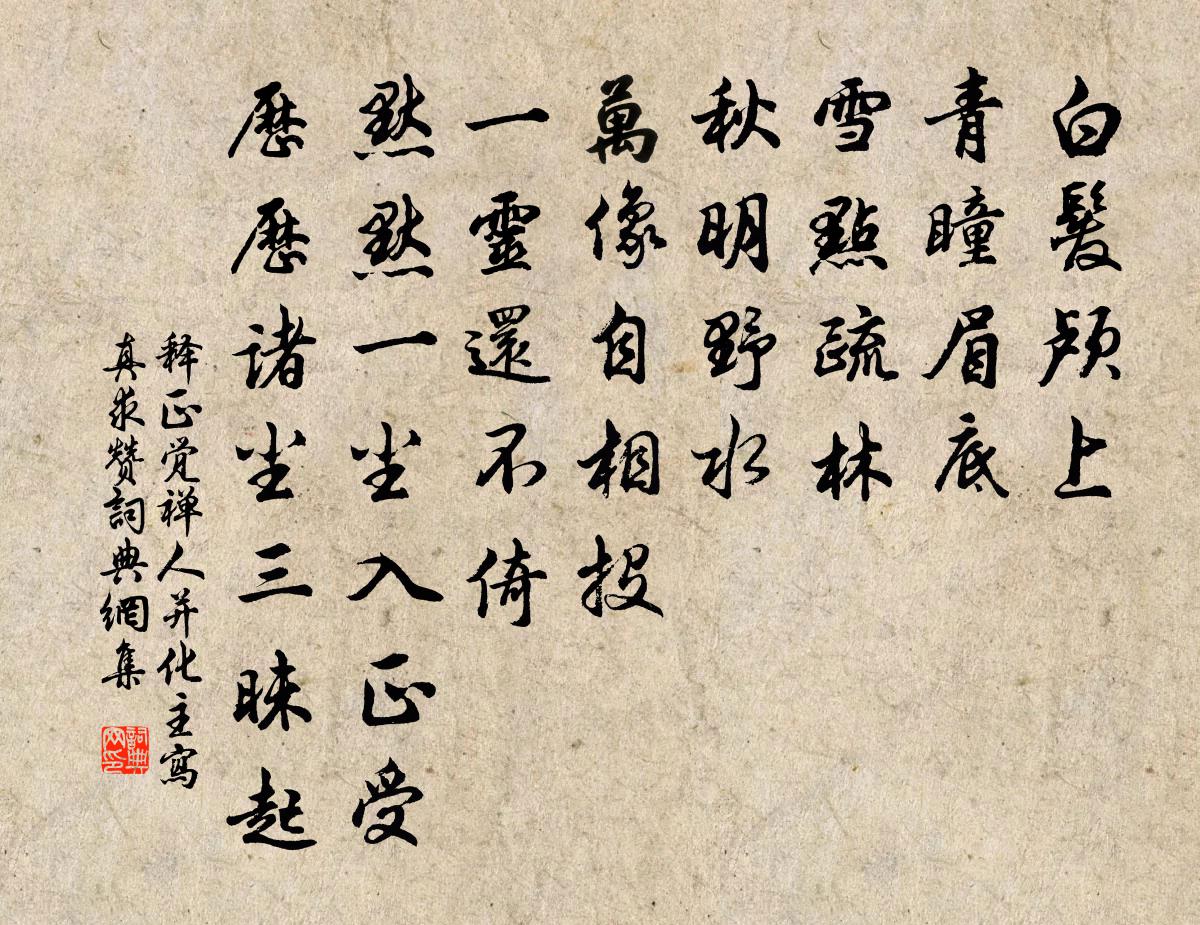 白髮颅上
青瞳眉底
雪點疏林
秋明野水
萬像自相投
一靈還不倚
默默一尘入正受
歷歷諸尘三昧起
释正觉禅人并化主寫
真求赞詞典網集
詞典
网印